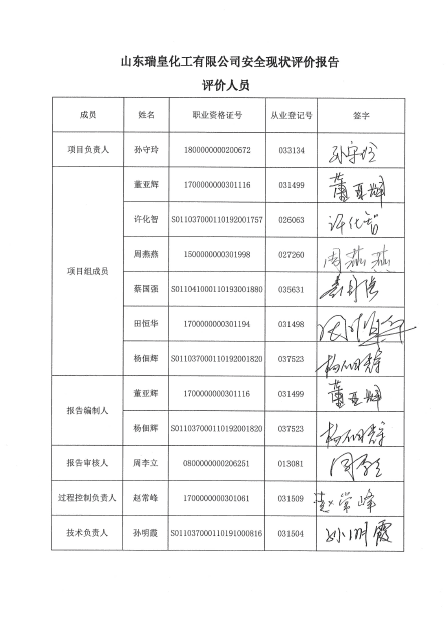 山东瑞皇化工有限公司安全现状评价报告
评价人员
成员 姓名 职业资格证号 从业登记号 签字
项目负责人 孙守玲 1800000000200672 033134 孙守玲
项目组成员 董亚辉 1700000000301116 031499 董亚辉
许化智 S011037000110192001757 026063 许化智
周燕燕 1500000000301998 027260 周燕燕
蔡国强 S011041000110193001880 035631
田恒华 1700000000301194 031498 田恒华
杨佃辉 S011037000110192001820 037523 杨佃辉
报告编制人 董亚辉 1700000000301116 031499 董亚辉
杨佃辉 S011037000110192001820 037523 杨佃辉
报告审核人 周李立 0800000000206251 013081 周李立
过程控制负责人 赵常峰 1700000000301061 031509 赵常峰
技术负责人 孙明霞 S011037000110191000816 031504 孙明霞